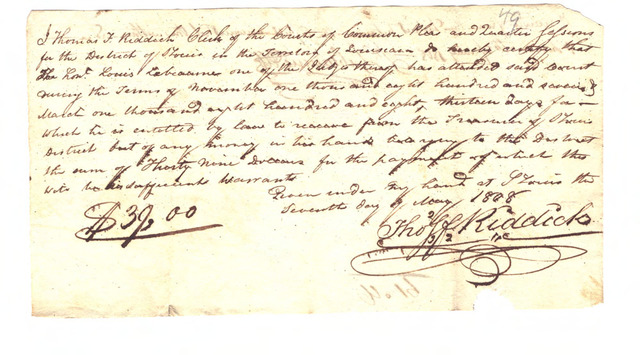 49
I Thomas F. Riddick Clerk of the Courts of Common Pleas and Quarter Sessions
for the District of St Louis in the Territory of Louisiana do hereby certify that
The Honl. Louis Labeaume one of the Judges thereof has attended said Court
during the Terms of November one thousand eight hundred and seven &
March one thousand eight hundred and eight, thirteen days for
which he is entitled by law to receive from the Treasurer of St Louis
District out of any money in his hands belonging to the District
the sum of Thirty Nine Dollars for the payment of which this
will be sufficient Warrants
Given under my hand at St Louis the
Seventh day of May 1808
$39,00
Thos F Riddick